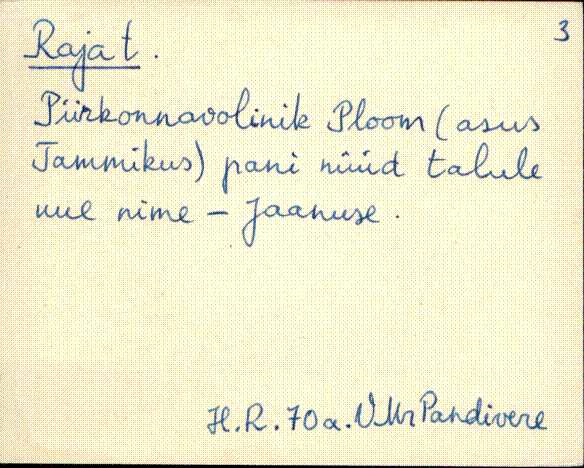 3
Raja t.
Piirkonnavolinik Ploom (asus
Tammikus) pani nüüd talule
uue nime – Jaanuse.
H.R. 70a. VMr Pandivere